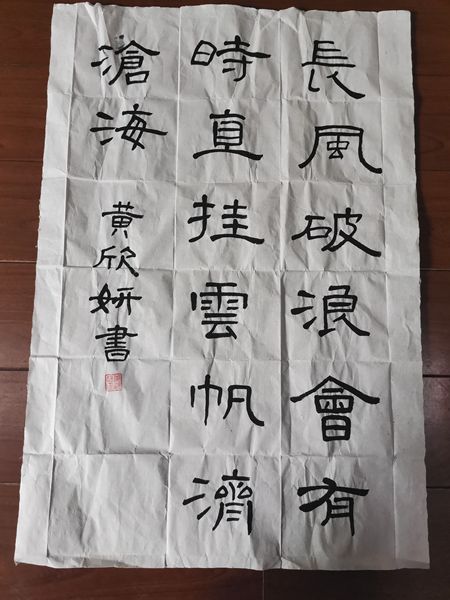 長風破浪會有
時直挂雲帆濟
滄海
黄欣妍書